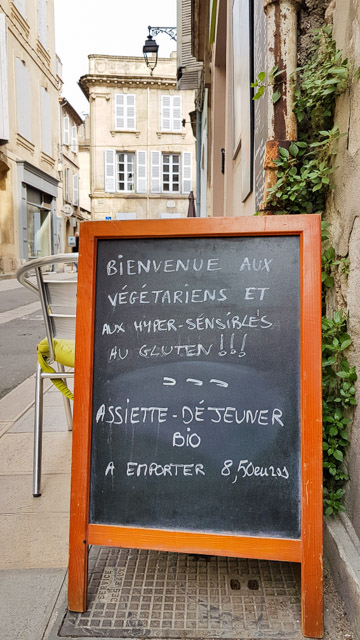 BIENVENUE AUX
VÉGÉTARIENS ET
AUX HYPER-SÉNSIBLES
AU GLUTEN !!!
ASSIETTE-DÉJEUNER
BIO
A EMPORTER 8,50euros